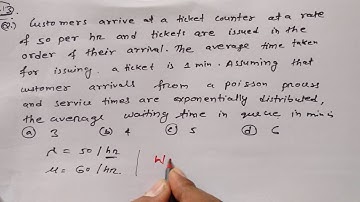 13.
Q.) Customers arrive at a ticket counter at a rate
of 50 per hr and tickets are issued in the
order of their arrival. The average time taken
for issuing a ticket is 1 min. Assuming that
customer arrivals from a poisson process
and service times are exponentially distributed,
the average waiting time in queue in min is
(a) 3 (b) 4 (c) 5 (d) 6
λ = 50 /hr
μ = 60 /hr
W